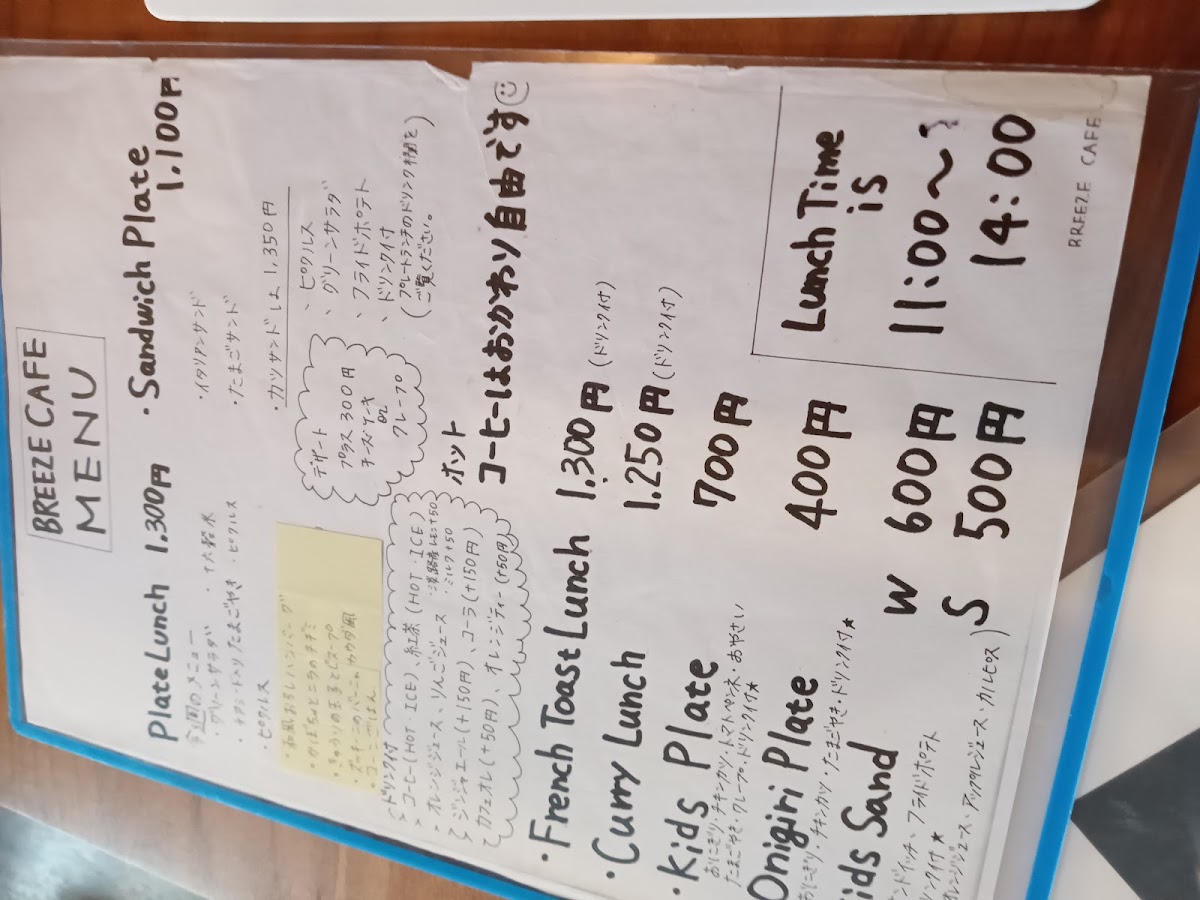 BREEZE CAFE
MENU
Plate Lunch 1,300円
今週のメニュー
・グリーンサラダ
・ドリトリたまごやき・ピクルス
・ピクルス
・和風おろしハンバーグ
・かぼちゃとニラのチヂミ
・きゅうりの玉子とじスープ
・コーンごはん
・ドリンク付
コーヒー(HOT・ICE)、紅茶(HOT・ICE)
・オレンジジュース、りんごジュース
・淡路産レモン+50
・ミルク+50
ジンジャエール(+150円)、コーラ(+150円)
カフェオレ(+50円)、オレンジティー(+50円)
・Sandwich Plate
1,100円
・イタリアンサンド
・たまごサンド
・カツサンドは 1,350円
、ピクルス
、グリーンサラダ
、フライドポテト
、ドリンク付
(プレートランチのドリンク欄を
ご覧ください。)
デザート
プラス300円
チーズケーキ
or
クレープ
ホット
コーヒーはおかわり自由です
・French Toast Lunch 1,300円(ドリンク付)
・Curry Lunch 1,250円(ドリンク付)
・Kids Plate 700円
おにぎり・チキンカツ・トマトペンネ・おやさい
たまごやき・クレープ・ドリンク付★
Onigiri Plate 400円
おにぎり・チキンカツ・たまごやき・ドリンク付★
ids Sand W 600円
S 500円
ンドイッチ、フライドポテト
リンク付★
オレンジジュース・アップルジュース・カルピス)
Lunch Time
is
11:00〜
14:00
BREEZE CAFE